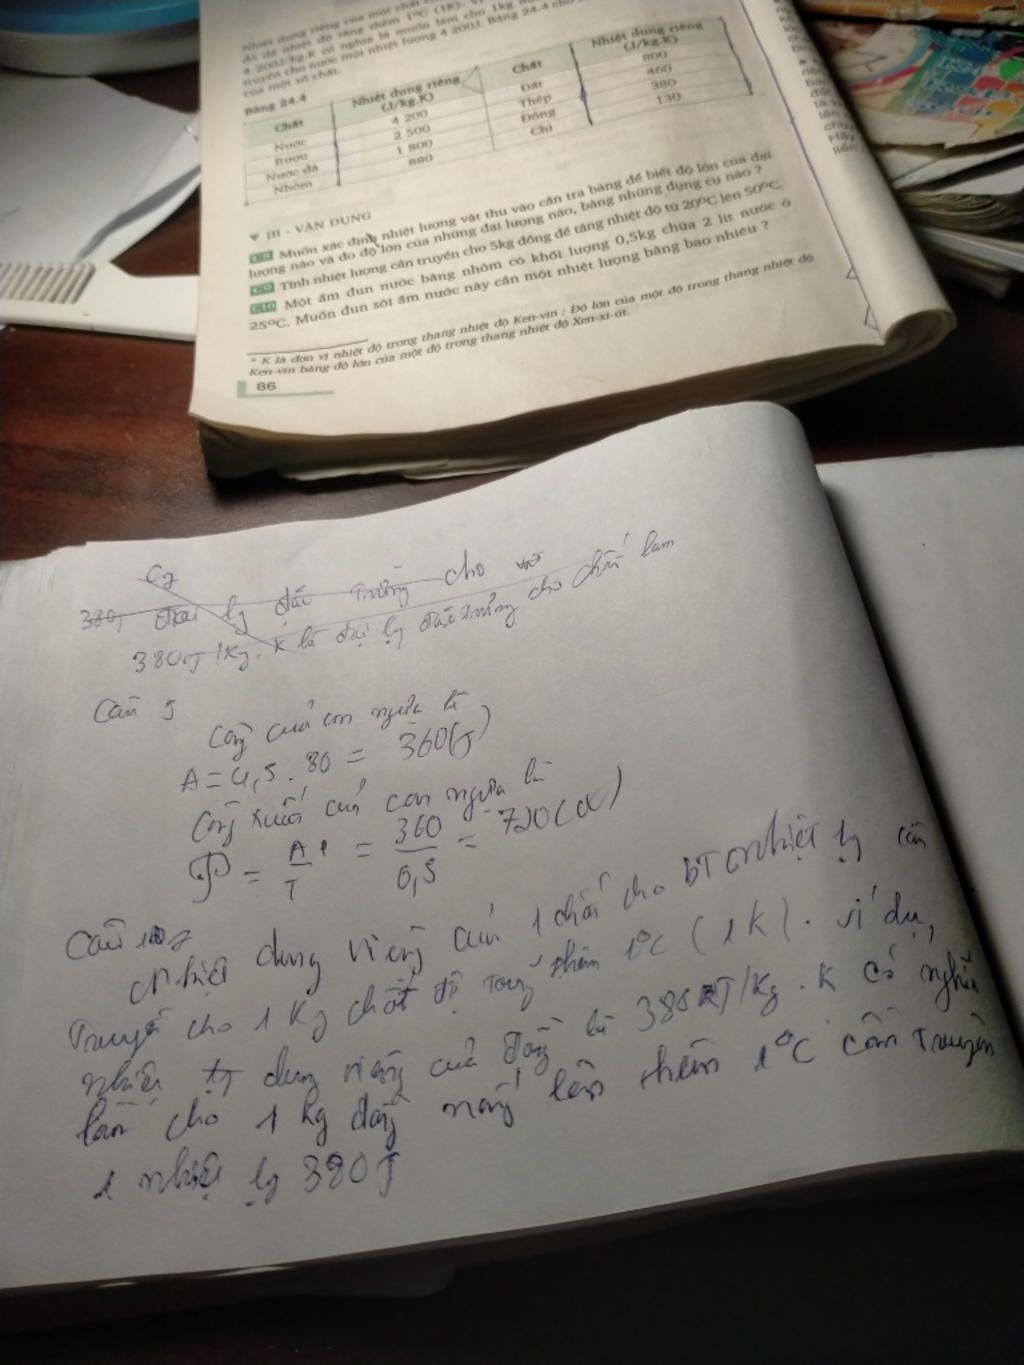 độ để nhiệt độ tăng thêm 1°C (1K).
4 200J/kg.K có nghĩa là muốn làm cho 1kg
truyền cho nước một nhiệt lượng 4 200J. Bảng 24.4 cho
của một số chất.
Bảng 24.4
Chất Nhiệt dung riêng (J/kg.K) Chất Nhiệt dung riêng (J/kg.K)
Nước 4 200 Đất 800
Rượu 2 500 Thép 460
Nước đá 1 800 Đồng 380
Nhôm 880 Chì 130
III - VẬN DỤNG
C8 Muốn xác định nhiệt lượng vật thu vào cần tra bảng để biết độ lớn của đại
lượng nào và đo độ lớn của những đại lượng nào, bằng những dụng cụ nào ?
C9 Tính nhiệt lượng cần truyền cho 5kg đồng để tăng nhiệt độ từ 20°C lên 50°C.
C10 Một ấm đun nước bằng nhôm có khối lượng 0,5kg chứa 2 lít nước ở
25°C. Muốn đun sôi ấm nước này cần một nhiệt lượng bằng bao nhiêu ?
* K là đơn vị nhiệt độ trong thang nhiệt độ Ken-vin : Độ lớn của một độ trong thang nhiệt độ
Ken-vin bằng độ lớn của một độ trong thang nhiệt độ Xen-xi-út.
86
380J đại lg đặc trưng cho
380J/kg.K là đại lg đặc trưng cho chất làm
Câu 5
Công của con ngựa là
A = 4,5 . 80 = 360(J)
Công xuất của con ngựa là
P = A / T = 360 / 0,5 = 720(W)
Câu
Nhiệt dung riêng của 1 chất cho bt nhiệt lg cần
Truyền cho 1 kg chất độ tăng thêm 1°C (1K). ví dụ,
nhiệt dung riêng của đồng là 380J/kg.K có nghĩa
làm cho 1 kg đồng nóng lên thêm 1°C cần truyền
1 nhiệt lg 380J